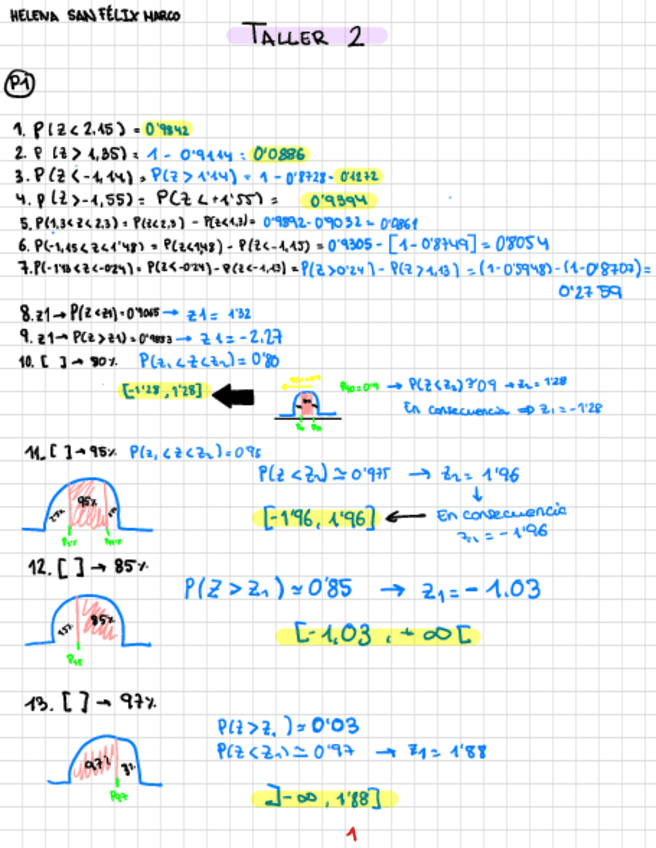 HELENA SAN FÉLIX MARCO
TALLER 2
P1
1. P(Z < 2,15) = 0'9842
2. P(Z > 1,35) = 1 - 0'9114 = 0'0886
3. P(Z < -1,14) = P(Z > 1'14) = 1 - 0'8728 = 0'1272
4. P(Z > -1,55) = P(Z < +1'55) = 0'9394
5. P(1,3 < Z < 2,3) = P(Z < 2,3) - P(Z < 1,3) = 0'9892 - 0'9032 = 0'0861
6. P(-1,15 < Z < 1'48) = P(Z < 1,48) - P(Z < -1,15) = 0'9305 - [1 - 0'8749] = 0'8054
7. P(-1'13 < Z < -0'24) = P(Z < -0'24) - P(Z < -1,13) = P(Z > 0'24) - P(Z > 1,13) = (1 - 0'5948) - (1 - 0'8707) =
0'2759
8. z1 → P(Z < z1) = 0'9065 → z1 = 1'32
9. z1 → P(Z > z1) = 0'9883 → z1 = -2,27
10. [ ] → 80% P(z₁ < Z < z₂) = 0'80
[-1'28, 1'28]
P90 = 0'9 → P(Z < z₂) = 0'9 → z₂ = 1'28
En consecuencia ⇒ z₁ = -1'28
11. [ ] → 95% P(z₁ < Z < z₂) = 0'95
P(Z < z₂) ≃ 0'975 → z₂ = 1'96
95%
[-1'96, 1'96] ← En consecuencia
z₁ = -1'96
12. [ ] → 85%
P(Z > z₁) ≃ 0'85 → z₁ = -1.03
15% 85%
[-1,03, +∞[
P15
13. [ ] → 97%
P(Z > z₁) ≃ 0'03
P(Z < z₁) ≃ 0'97 → z₁ = 1'88
97% 3%
P97
]-∞, 1'88]
1